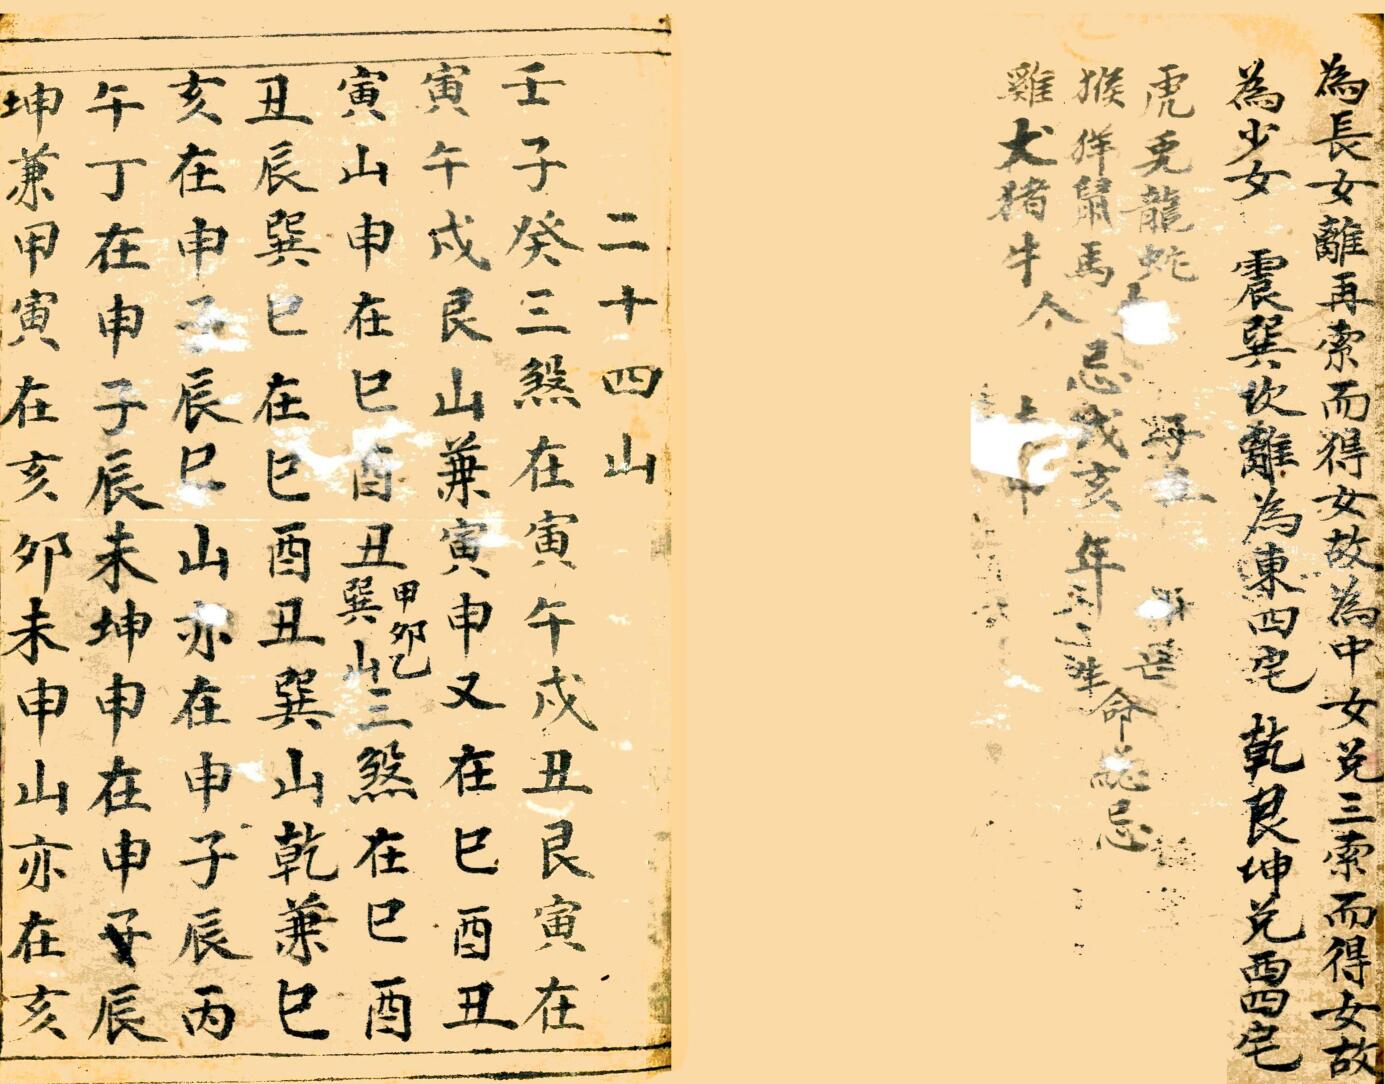 為長女離再索而得女故為中女兌三索而得女故
為少女 震巽坎離為東四宅 乾艮坤兌西四宅
虎兎龍蛇
猴羊鼠馬 忌戌亥年 命總忌
雞犬猪牛人
二十四山
壬子癸三煞在寅午戍丑艮寅在
寅午戍艮山兼寅申又在巳酉丑
寅山申在巳酉丑甲卯乙巽山三煞在巳酉
丑辰巽巳在巳酉丑巽山乾兼巳
亥在申子辰巳山亦在申子辰丙
午丁在申子辰未坤申在申子辰
坤兼甲寅在亥卯未申山亦在亥